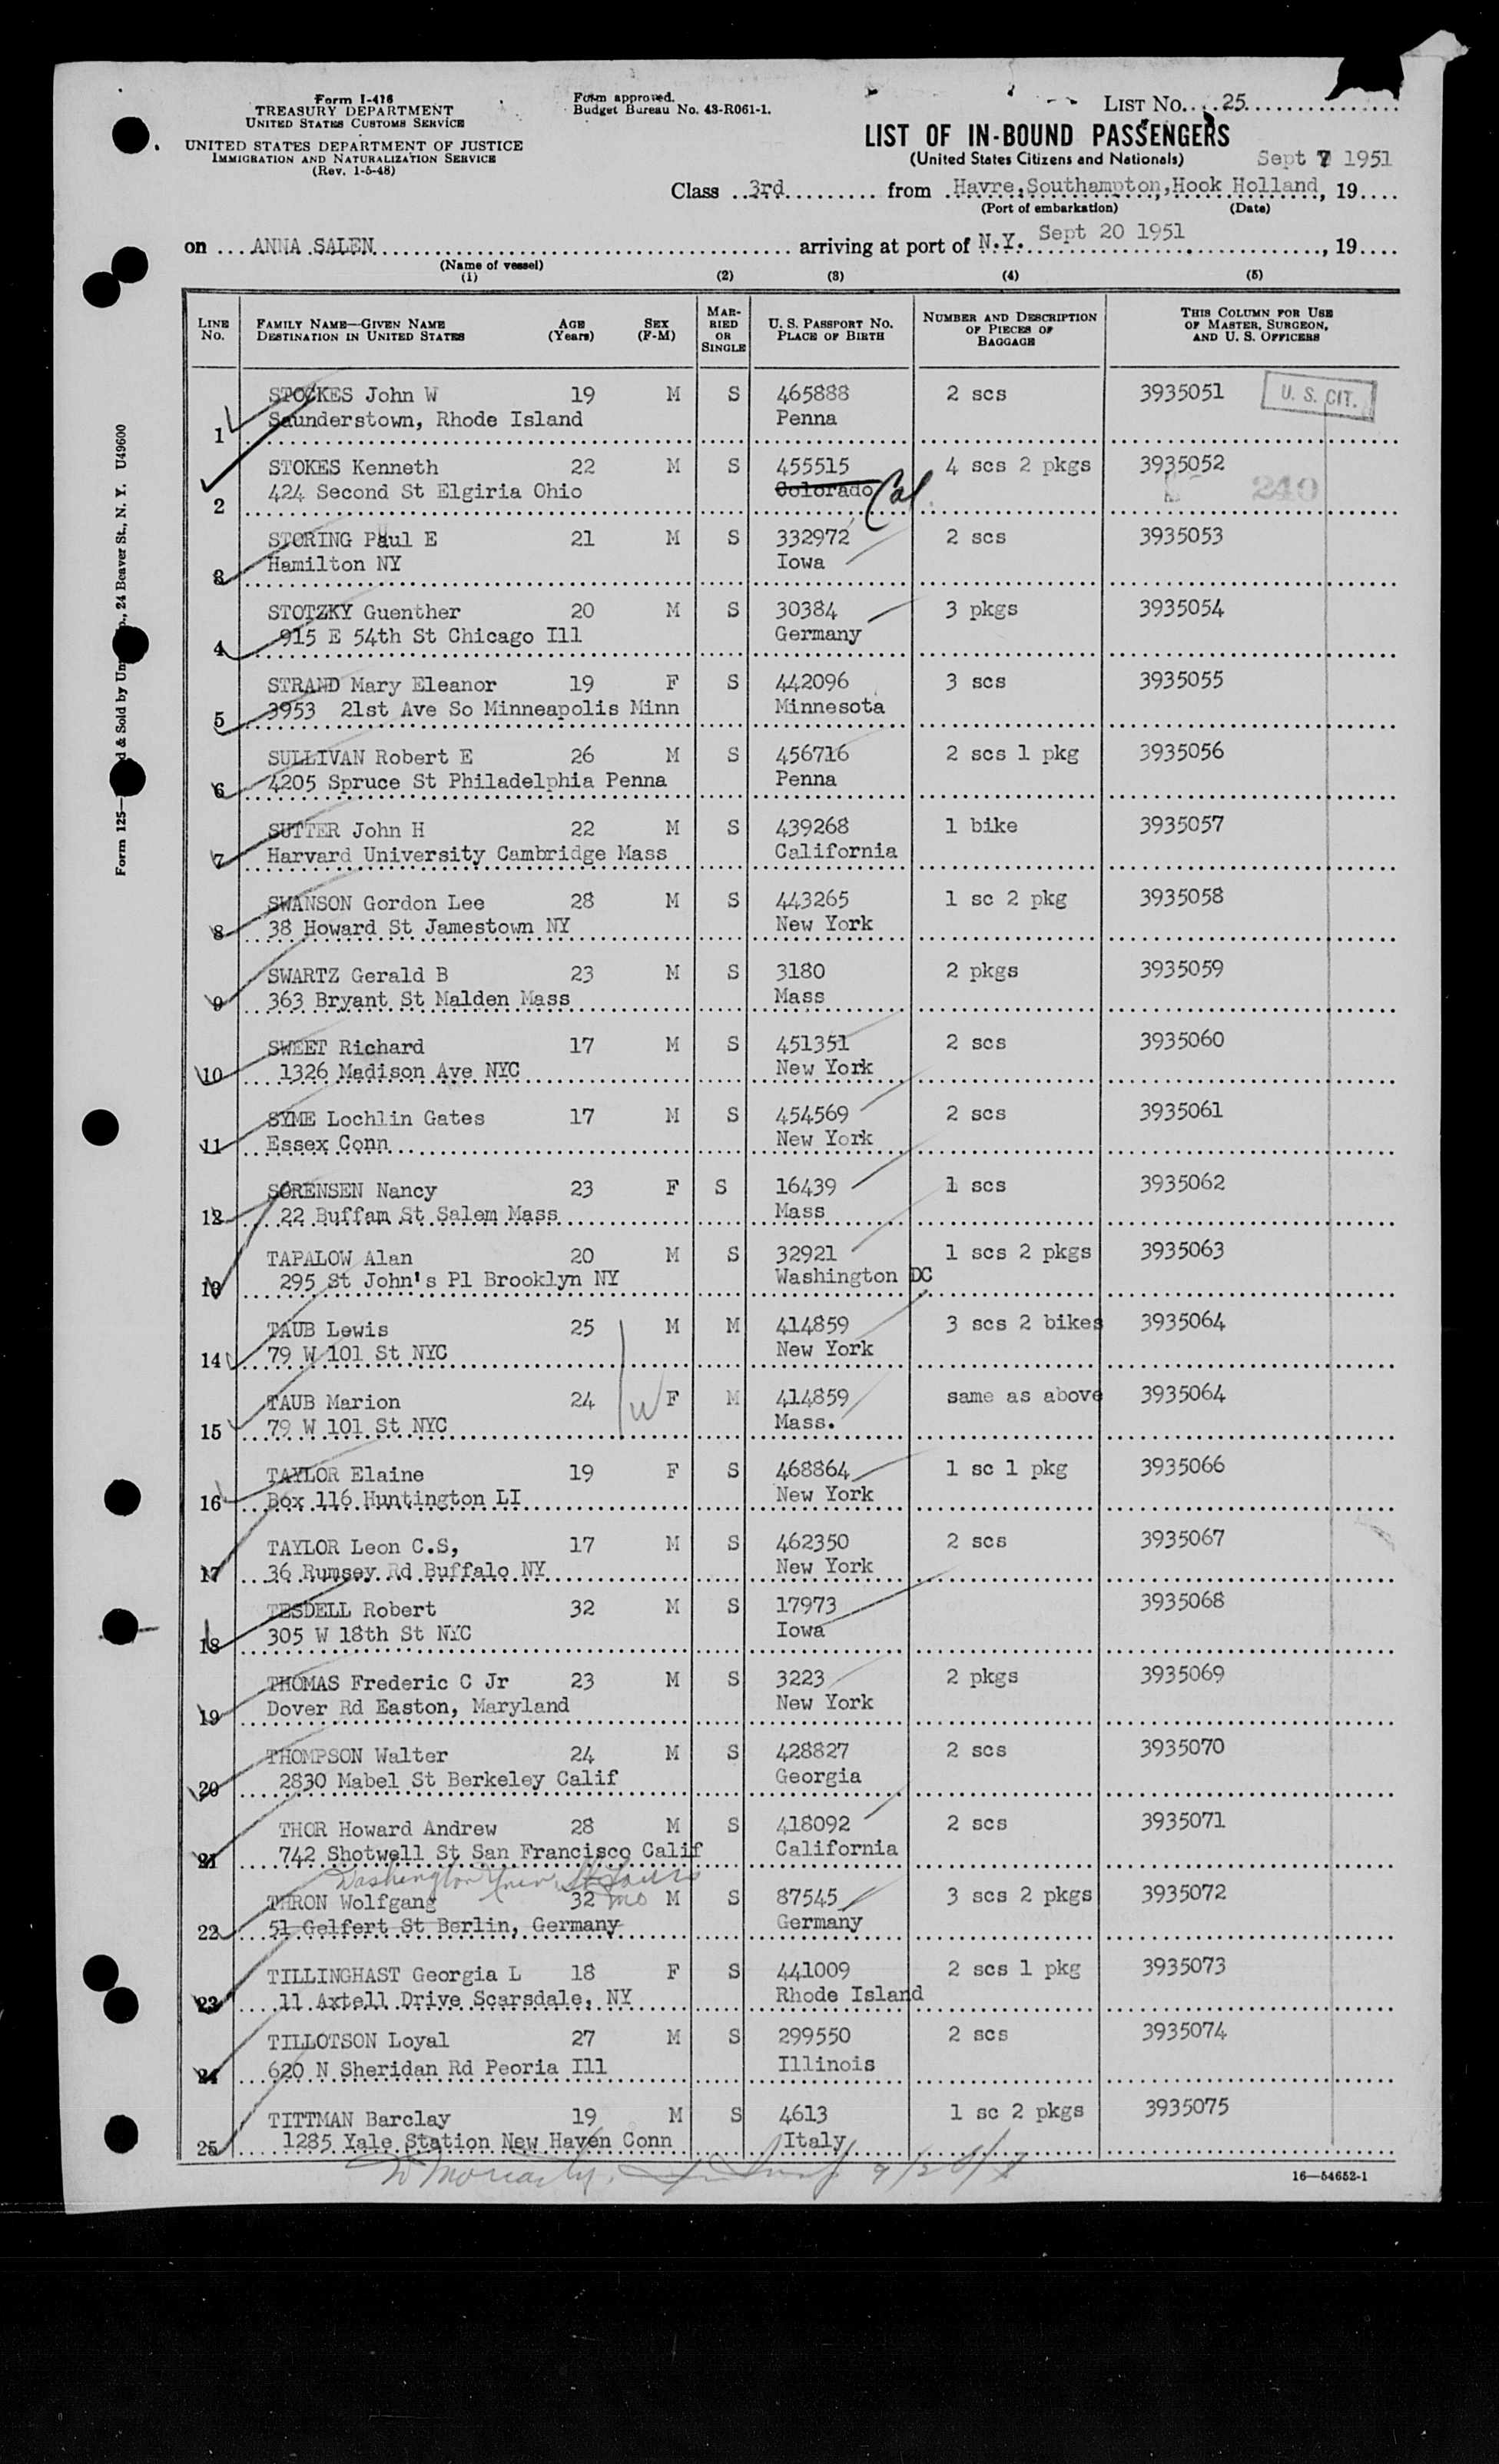 Form I-416
TREASURY DEPARTMENT
UNITED STATES CUSTOMS SERVICE
UNITED STATES DEPARTMENT OF JUSTICE
IMMIGRATION AND NATURALIZATION SERVICE
(Rev. 1-5-48)
Form approved.
Budget Bureau No. 43-R061-1.
LIST NO. 25
LIST OF IN-BOUND PASSENGERS
(United States Citizens and Nationals)
Sept 7 1951
Class 3rd from Havre, Southampton, Hook Holland, 19
(Port of embarkation) (Date)
on ANNA SALEN arriving at port of N.Y. Sept 20 1951, 19
(Name of vessel)
(1) (2) (3) (4) (5)
LINE NO. FAMILY NAME—GIVEN NAME DESTINATION IN UNITED STATES AGE (Years) SEX (F-M) MARRIED OR SINGLE U. S. PASSPORT NO. PLACE OF BIRTH NUMBER AND DESCRIPTION OF PIECES OF BAGGAGE THIS COLUMN FOR USE OF MASTER, SURGEON, AND U. S. OFFICERS
STOCKES John W 19 M S 465888 2 scs 3935051 U. S. CIT.
1 Saunderstown, Rhode Island Penna
STOKES Kenneth 22 M S 455515 4 scs 2 pkgs 3935052
2 424 Second St Elgiria Ohio Colorado Cal 249
STORING Paul E 21 M S 332972 2 scs 3935053
3 Hamilton NY Iowa
STOTZKY Guenther 20 M S 30384 3 pkgs 3935054
4 915 E 54th St Chicago Ill Germany
STRAND Mary Eleanor 19 F S 442096 3 scs 3935055
5 3953 21st Ave So Minneapolis Minn Minnesota
SULLIVAN Robert E 26 M S 456716 2 scs 1 pkg 3935056
6 4205 Spruce St Philadelphia Penna Penna
SUTTER John H 22 M S 439268 1 bike 3935057
7 Harvard University Cambridge Mass California
SWANSON Gordon Lee 28 M S 443265 1 sc 2 pkg 3935058
8 38 Howard St Jamestown NY New York
SWARTZ Gerald B 23 M S 3180 2 pkgs 3935059
9 363 Bryant St Malden Mass Mass
SWEET Richard 17 M S 451351 2 scs 3935060
10 1326 Madison Ave NYC New York
SYME Lochlin Gates 17 M S 454569 2 scs 3935061
11 Essex Conn New York
SORENSEN Nancy 23 F S 16439 1 scs 3935062
12 22 Buffam St Salem Mass Mass
TAPALOW Alan 20 M S 32921 1 scs 2 pkgs 3935063
13 295 St John's Pl Brooklyn NY Washington DC
TAUB Lewis 25 M M 414859 3 scs 2 bikes 3935064
14 79 W 101 St NYC New York
TAUB Marion 24 W F M 414859 same as above 3935064
15 79 W 101 St NYC Mass.
TAYLOR Elaine 19 F S 468864 1 sc 1 pkg 3935066
16 Box 116 Huntington LI New York
TAYLOR Leon C.S, 17 M S 462350 2 scs 3935067
17 36 Rumsey Rd Buffalo NY New York
TESDELL Robert 32 M S 17973 3935068
18 305 W 18th St NYC Iowa
THOMAS Frederic C Jr 23 M S 3223 2 pkgs 3935069
19 Dover Rd Easton, Maryland New York
THOMPSON Walter 24 M S 428827 2 scs 3935070
20 2830 Mabel St Berkeley Calif Georgia
THOR Howard Andrew 28 M S 418092 2 scs 3935071
21 742 Shotwell St San Francisco Calif California
Washington Univ. St Louis
THRON Wolfgang 32 mo M S 87545 3 scs 2 pkgs 3935072
22 51 Gelfert St Berlin, Germany Germany
TILLINGHAST Georgia L 18 F S 441009 2 scs 1 pkg 3935073
23 11 Axtell Drive Scarsdale, NY Rhode Island
TILLOTSON Loyal 27 M S 299550 2 scs 3935074
24 620 N Sheridan Rd Peoria Ill Illinois
TITTMAN Barclay 19 M S 4613 1 sc 2 pkgs 3935075
25 1285 Yale Station New Haven Conn Italy
16—54652-1
Form 125— d & Sold by Un p., 24 Beaver St., N. Y. U49600